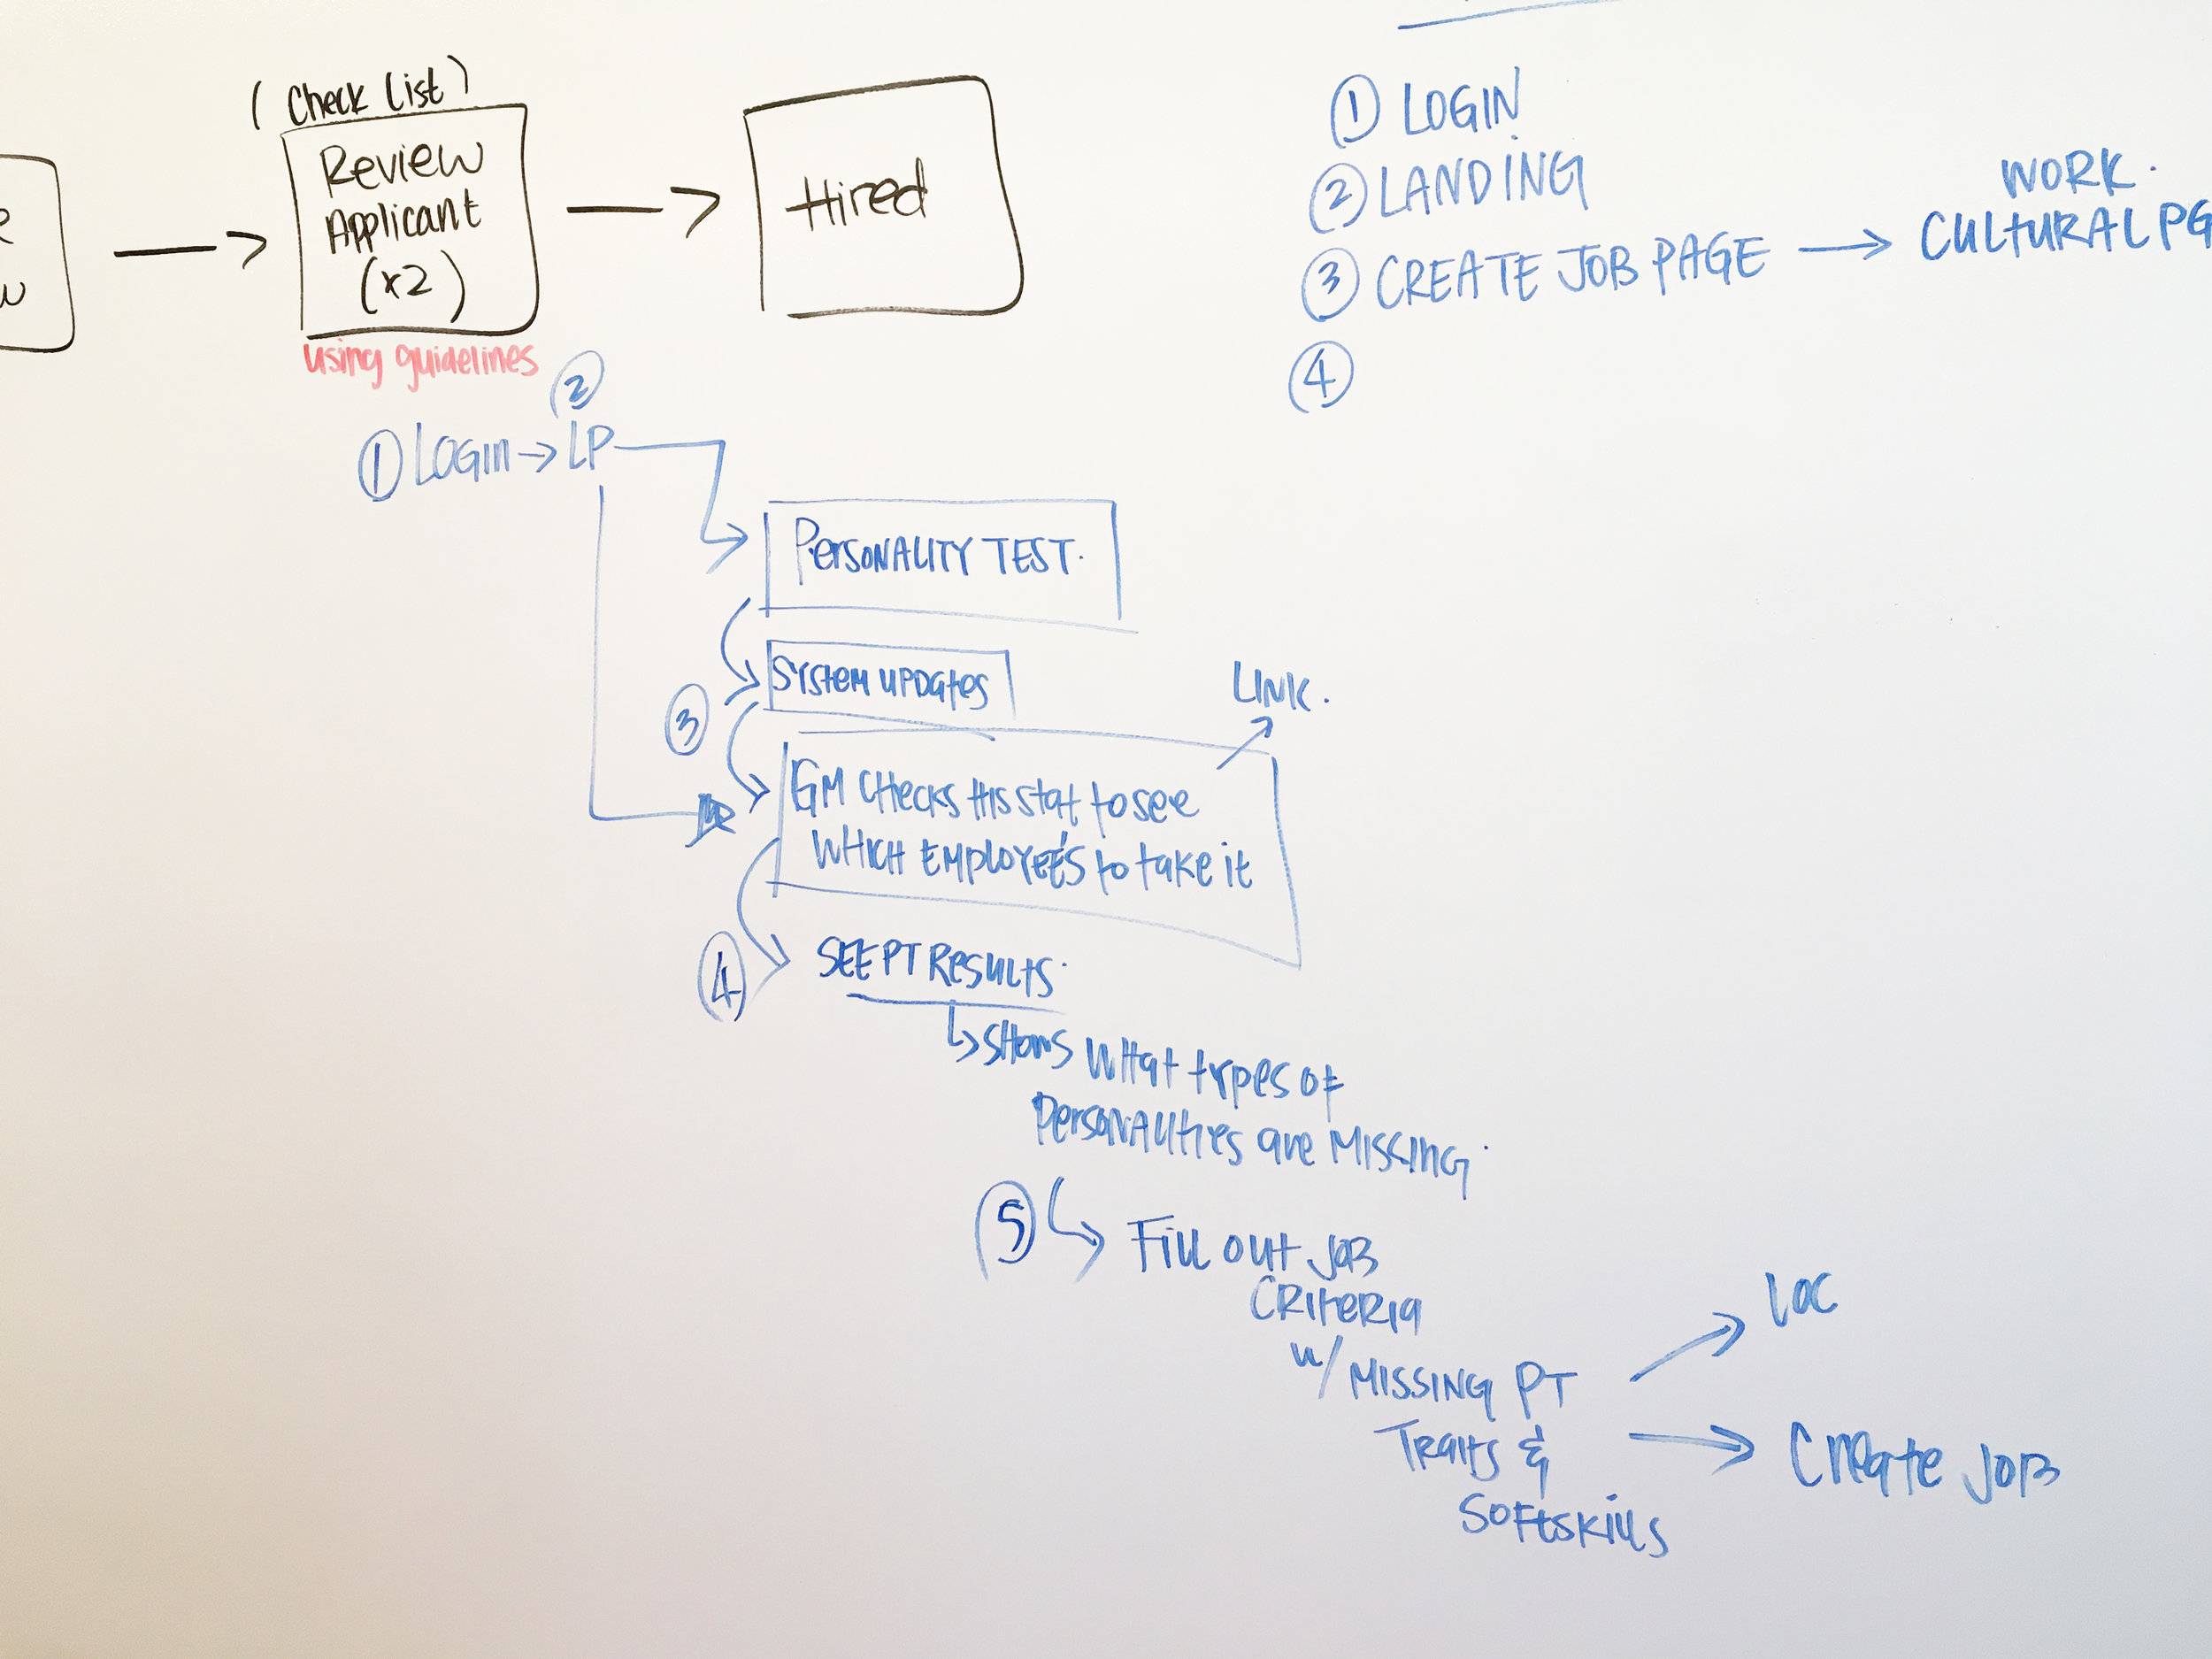 (Check List)
Review
Applicant
(x2)
using guidelines
Hired
① LOGIN
② LANDING
③ CREATE JOB PAGE → WORK.
CULTURAL PG
④
① LOGIN → LP
②
PERSONALITY TEST.
SYSTEM UPDATES
③
LINK.
GM CHECKS HIS STAT TO SEE
WHICH EMPLOYEE'S TO TAKE IT
④ SEE PT RESULTS.
↳ SHOWS WHAT TYPES OF
PERSONALITIES ARE MISSING.
⑤ ↳ FILL OUT JOB
CRITERIA
W/ MISSING PT
TRAITS &
SOFTSKILLS
→ LOC
→ CREATE JOB